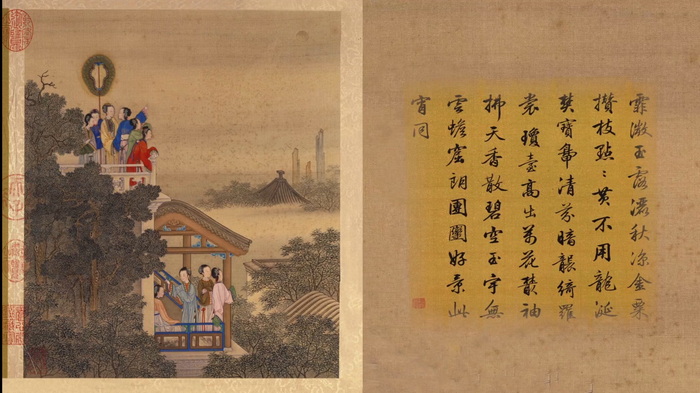 霏微玉露濕秋涼金粟
攢枝點〻黃不用龍涎
爇寶鼎清芬暗襲綺羅
裳瓊臺高出萬花叢袖
拂天香散碧空玉宇無
雲蟾窟朗團圞好景此
宵同